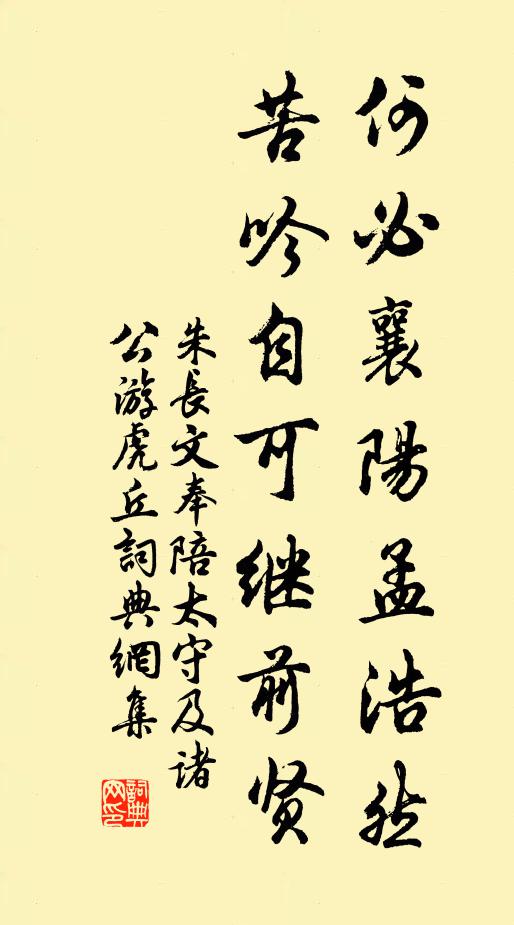 何必襄陽孟浩然
苦吟自可继前贤
朱長文奉陪太守及诸
公游虎丘詞典網集
詞典
网印